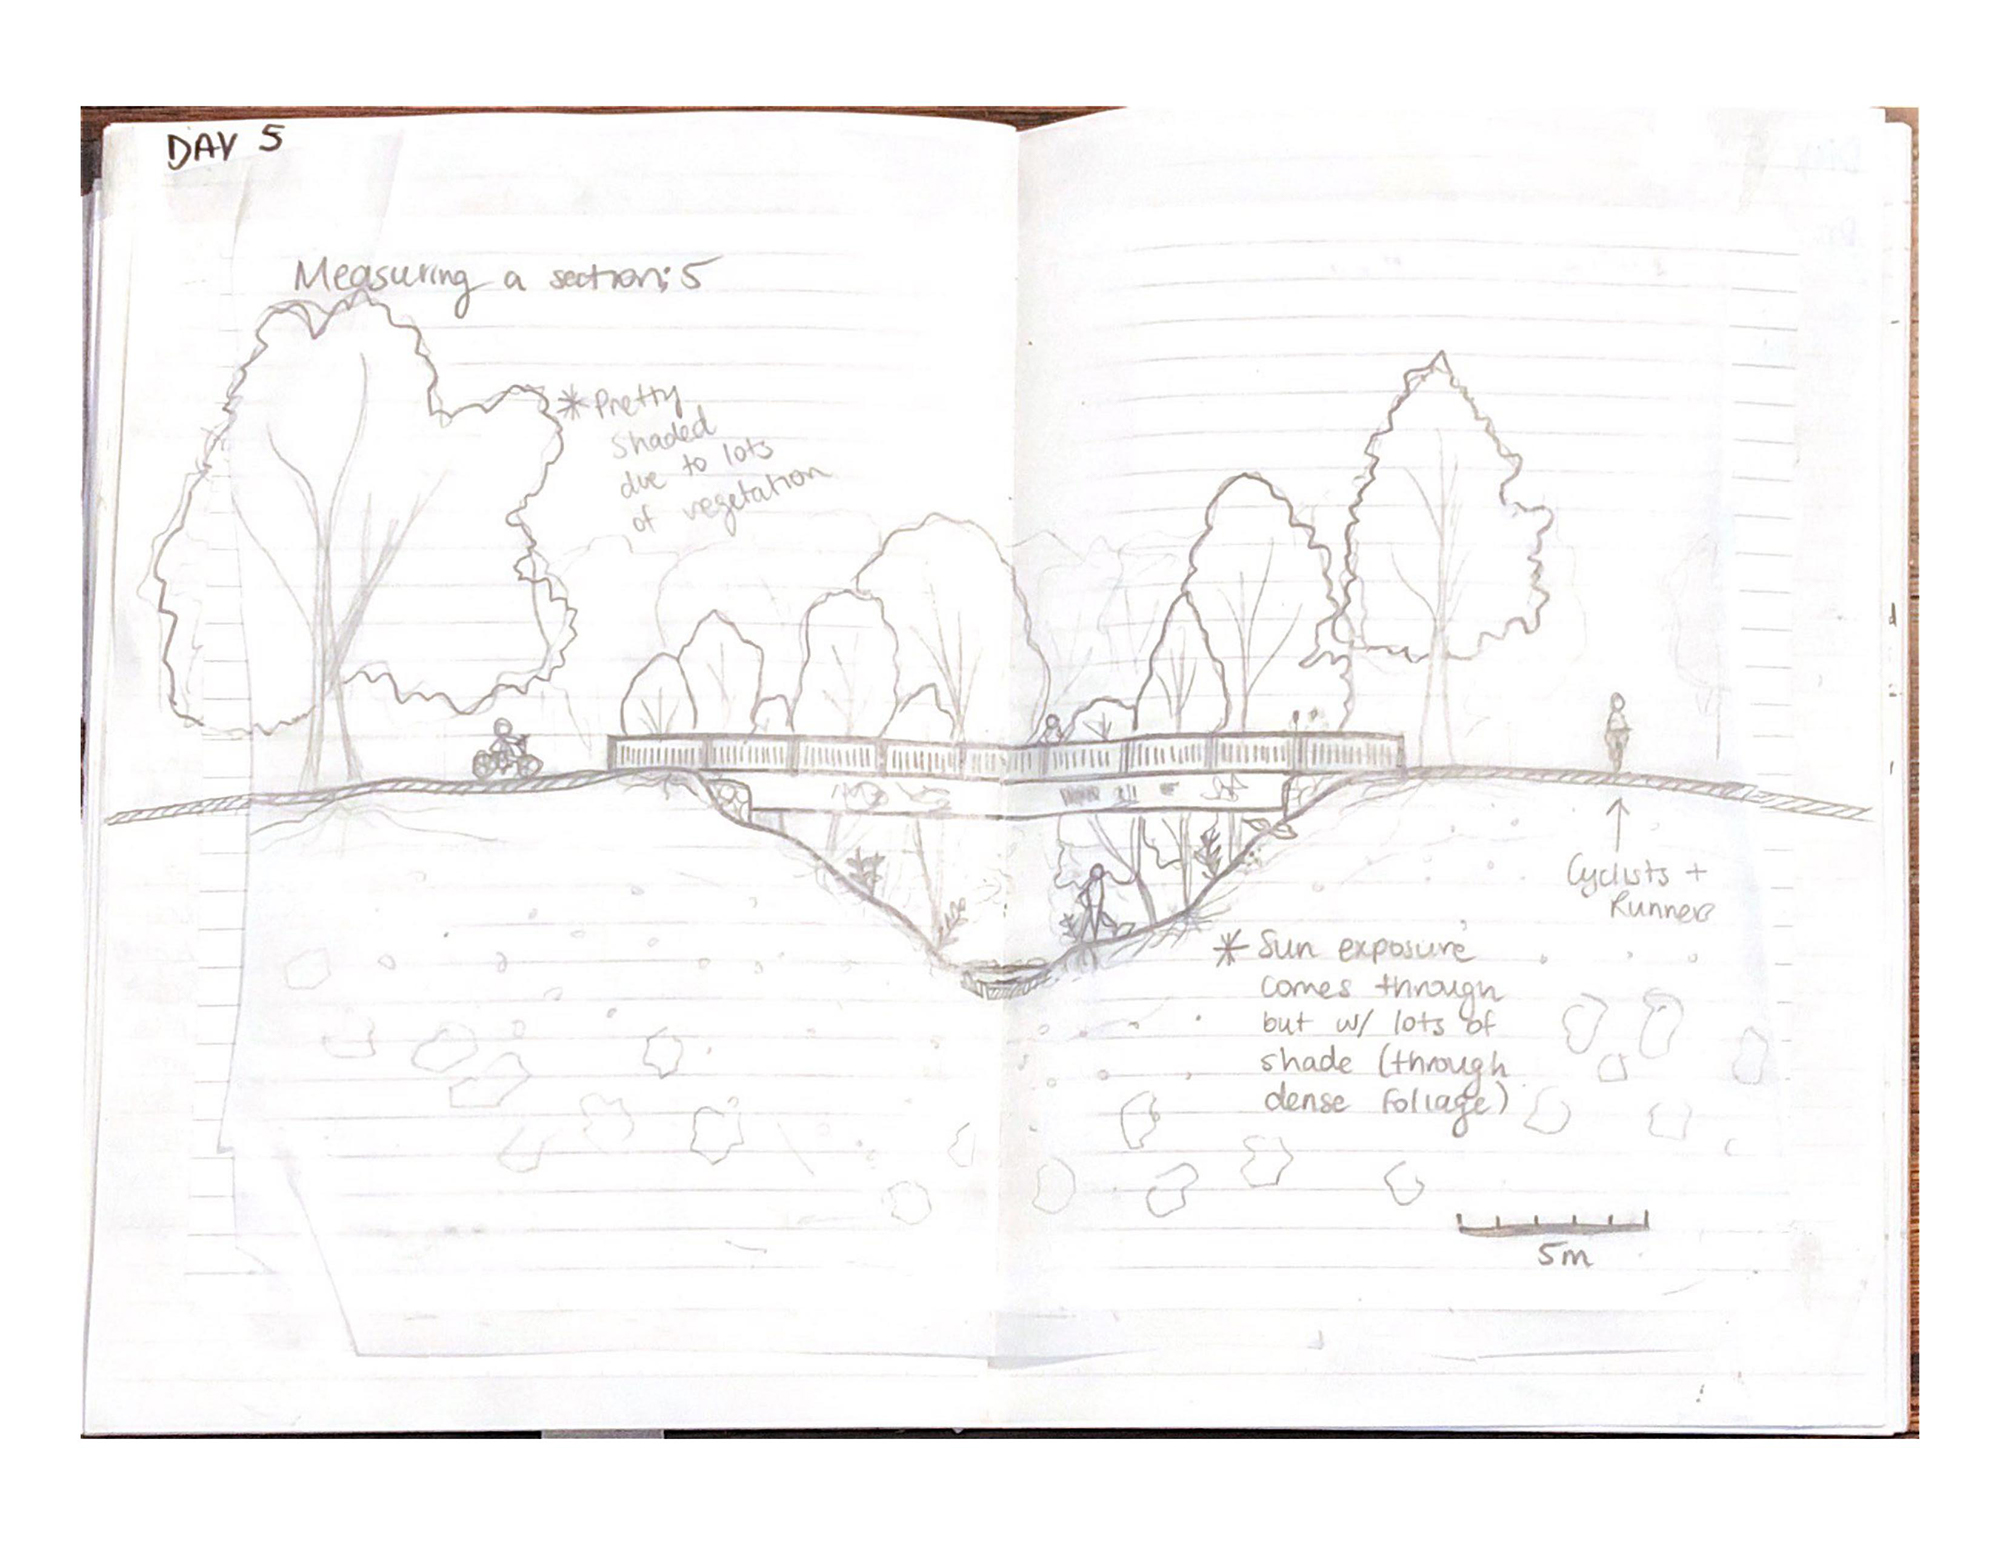 DAY 5
Measuring a section: 5
* Pretty
shaded
due to lots
of vegetation
Cyclists +
Runners
* Sun exposure
comes through
but w/ lots of
shade (through
dense foliage)
5m